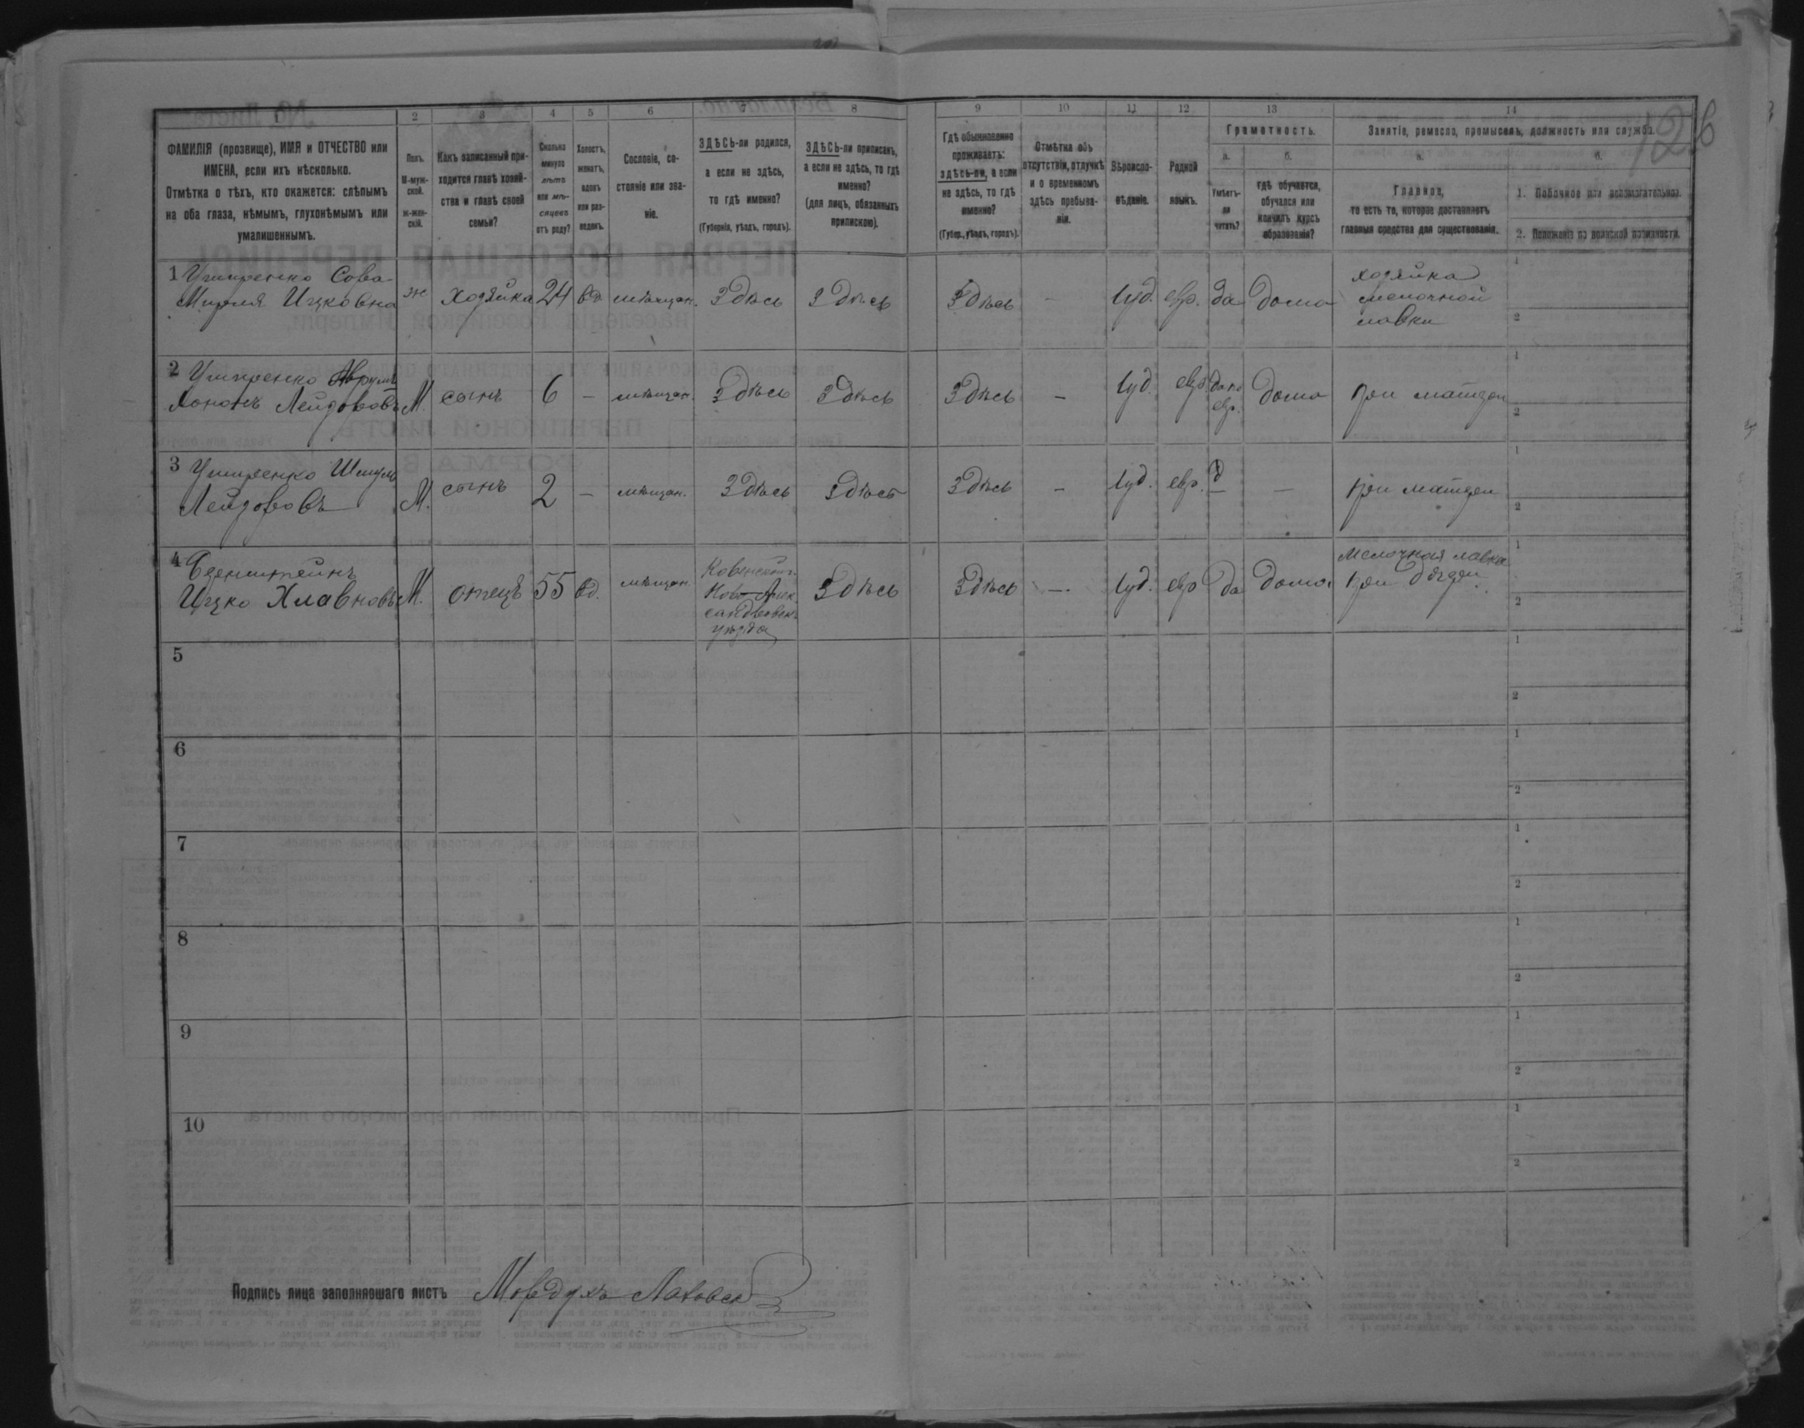 1 2 3 4 5 6 7 8 9 10 11 12 13 14
ФАМИЛІЯ (прозвище), ИМЯ и ОТЧЕСТВО или
ИМЕНА, если ихъ нѣсколько.
Отмѣтка о тѣхъ, кто окажется: слѣпымъ
на оба глаза, нѣмымъ, глухонѣмымъ или
умалишеннымъ.
Полъ.
М-муж-
ской.
Ж-жен-
скій.
Какъ записанный при-
ходится главѣ хозяй-
ства и главѣ своей
семьи?
Сколько
минуло
лѣтъ
или мѣ-
сяцевъ
отъ роду?
Холостъ,
женатъ,
вдовъ
или раз-
веденъ.
Сословіе, со-
стояніе или зва-
ніе.
ЗДѢСЬ-ли родился,
а если не здѣсь,
то гдѣ именно?
(Губернія, уѣздъ, городъ).
ЗДѢСЬ-ли приписанъ,
а если не здѣсь, то гдѣ
именно?
(для лицъ, обязанныхъ
припискою).
Гдѣ обыкновенно
проживаетъ:
здѣсь-ли, а если
не здѣсь, то гдѣ
именно?
(Губер., уѣздъ, городъ).
Отмѣтка объ
отсутствіи, отлучкѣ
и о временномъ
здѣсь пребыва-
ніи.
Вѣроиспо-
вѣданіе.
Родной
языкъ.
Грамотность.
а.
Умѣетъ-
ли
читать?
б.
гдѣ обучается,
обучался или
кончилъ курсъ
образованія?
Занятіе, ремесло, промыселъ, должность или служба.
а.
Главное,
то есть то, которое доставляетъ
главныя средства для существованія.
б.
1. Побочное или вспомогательное.
2. Положеніе по воинской повинности.
1 Сова-
Мирля Ицковна ж хозяйка 24 вд мѣщан. Здѣсь Здѣсь Здѣсь - Іуд. евр. да дома хозяйка
мелочной
лавки
2
Хононъ Лейзоровъ М. сынъ 6 - мѣщан. Здѣсь Здѣсь Здѣсь - Іуд. евр да по
евр. дома при матери
3 Шмуль
Лейзоровъ М. сынъ 2 - мѣщан. Здѣсь Здѣсь Здѣсь - Іуд. евр. - - при матери
4
Ицко Хлавновъ М. отецъ 55 вд. мѣщан Ковенской г.
Ново-Алек
сандровскаго
уѣзда Здѣсь Здѣсь - Іуд. евр да дома мелочная лавка
при дочери
5
6
7
8
9
10
Подпись лица заполнявшаго листъ Мордухъ